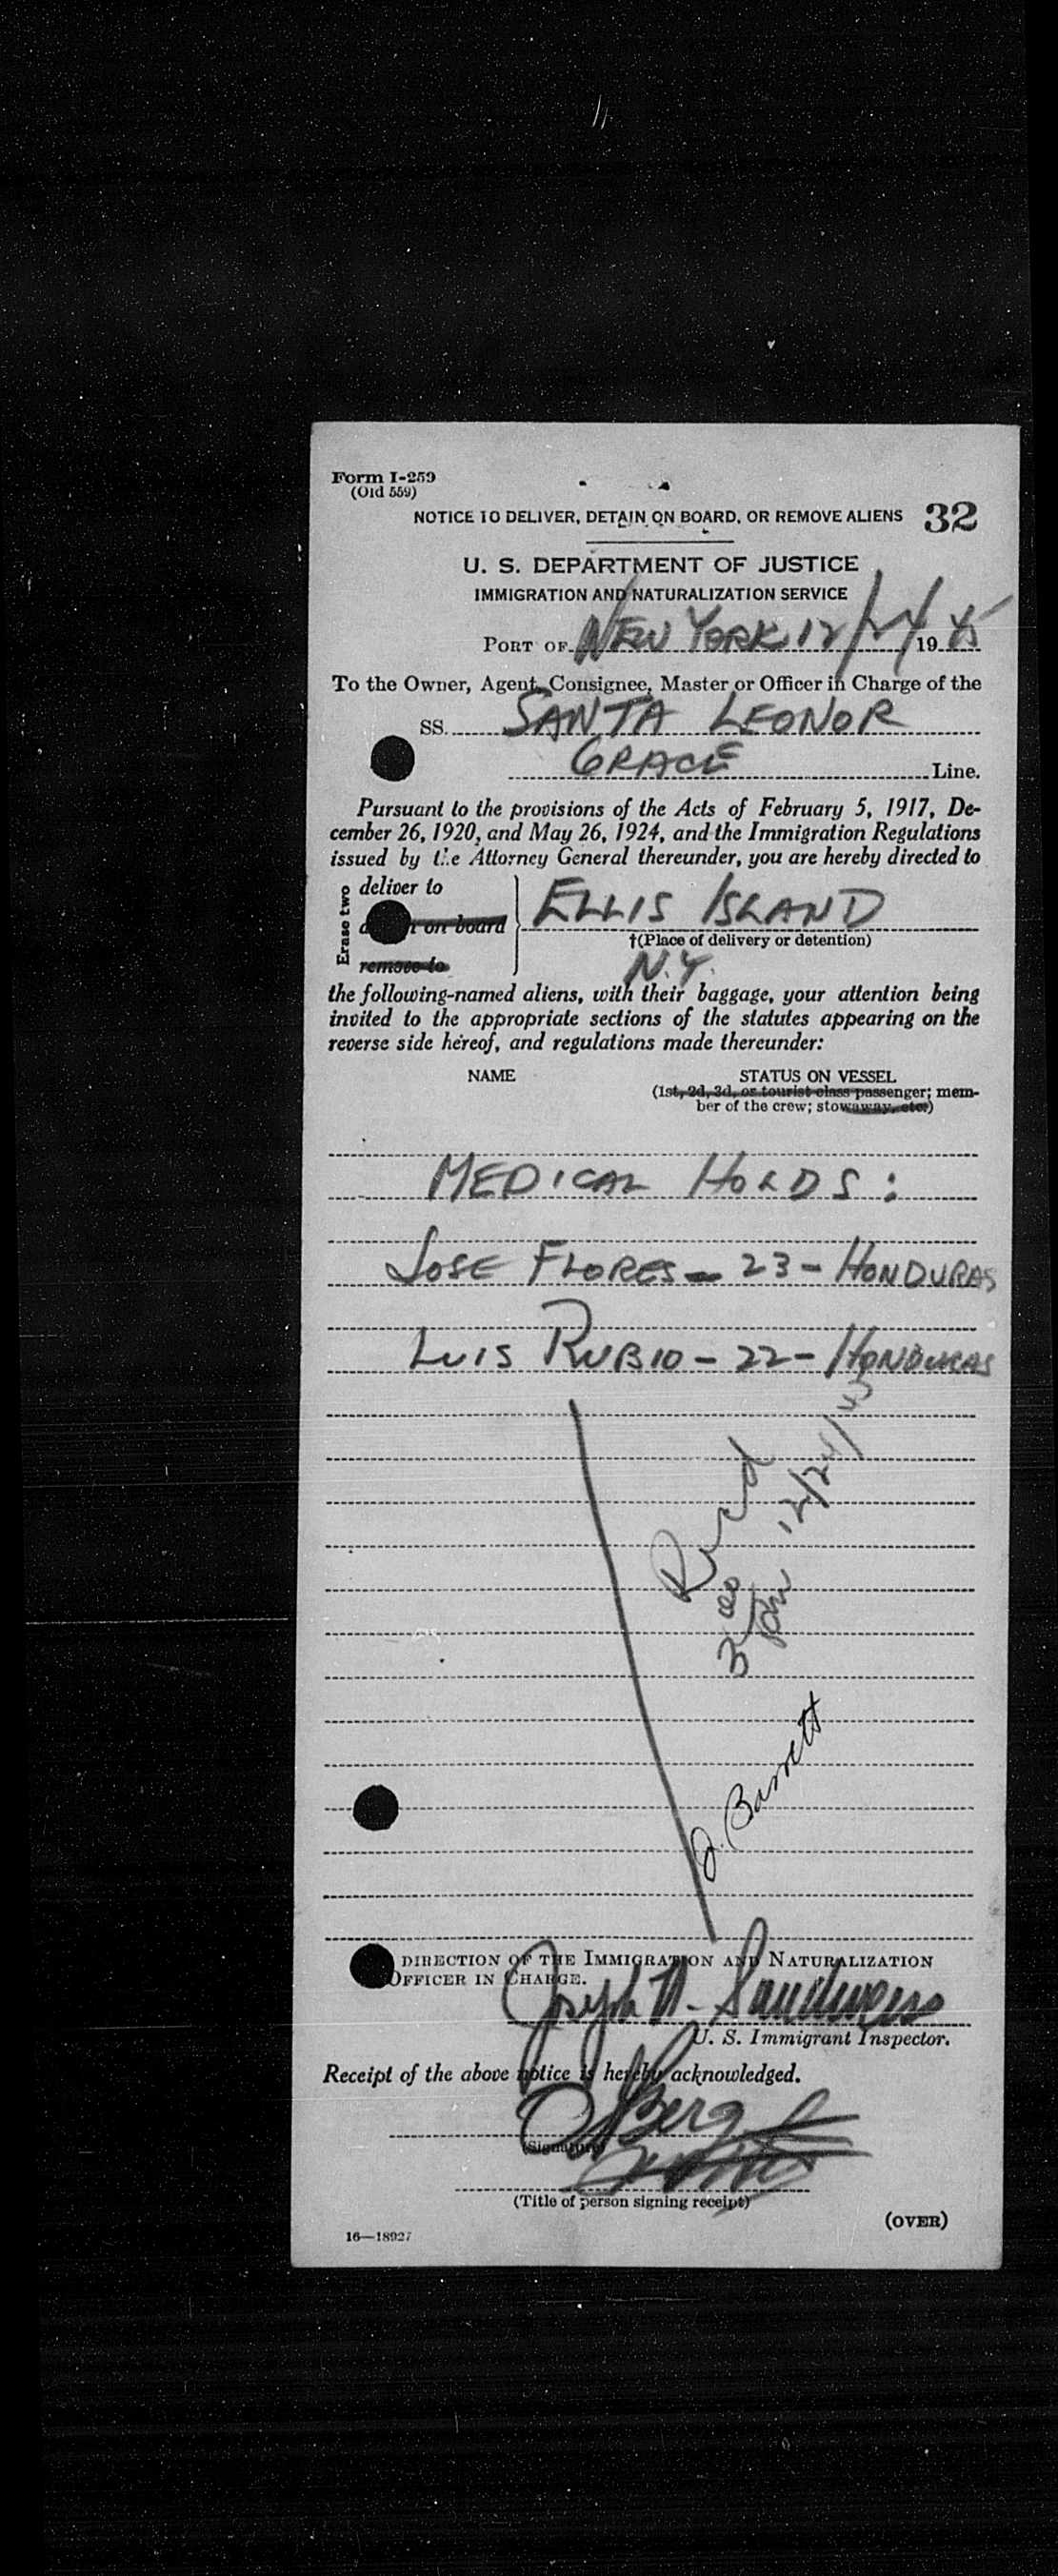 Form I-259
(Old 559)
NOTICE TO DELIVER, DETAIN ON BOARD, OR REMOVE ALIENS 32
U. S. DEPARTMENT OF JUSTICE
IMMIGRATION AND NATURALIZATION SERVICE
PORT OF NEW YORK 12/24 1945
To the Owner, Agent, Consignee, Master or Officer in Charge of the
SS. SANTA LEONOR
GRACE Line.
Pursuant to the provisions of the Acts of February 5, 1917, De-
cember 26, 1920, and May 26, 1924, and the Immigration Regulations
issued by the Attorney General thereunder, you are hereby directed to
Erase two
deliver to
on board
remove to
ELLIS ISLAND
†(Place of delivery or detention)
N.Y.
the following-named aliens, with their baggage, your attention being
invited to the appropriate sections of the statutes appearing on the
reverse side hereof, and regulations made thereunder:
NAME STATUS ON VESSEL
(1st, 2d, 3d, or tourist class passenger; mem-
ber of the crew; stowaway, etc.)
MEDICAL HOLDS:
JOSE FLORES - 23 - HONDURAS
LUIS RUBIO - 22 - HONDURAS
Rec'd
3 00 pm 12/24/45
J. Barrett
DIRECTION OF THE IMMIGRATION AND NATURALIZATION
OFFICER IN CHARGE.
Joseph
U. S. Immigrant Inspector.
Receipt of the above notice is hereby acknowledged.
Berg
(Signature)
(Title of person signing receipt)
(OVER)
16—18927